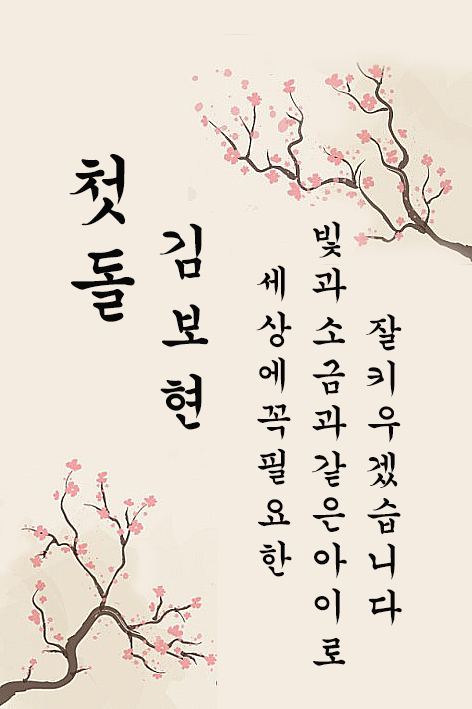 첫돌
김보현
세상에꼭필요한
빛과소금과같은아이로
잘키우겠습니다